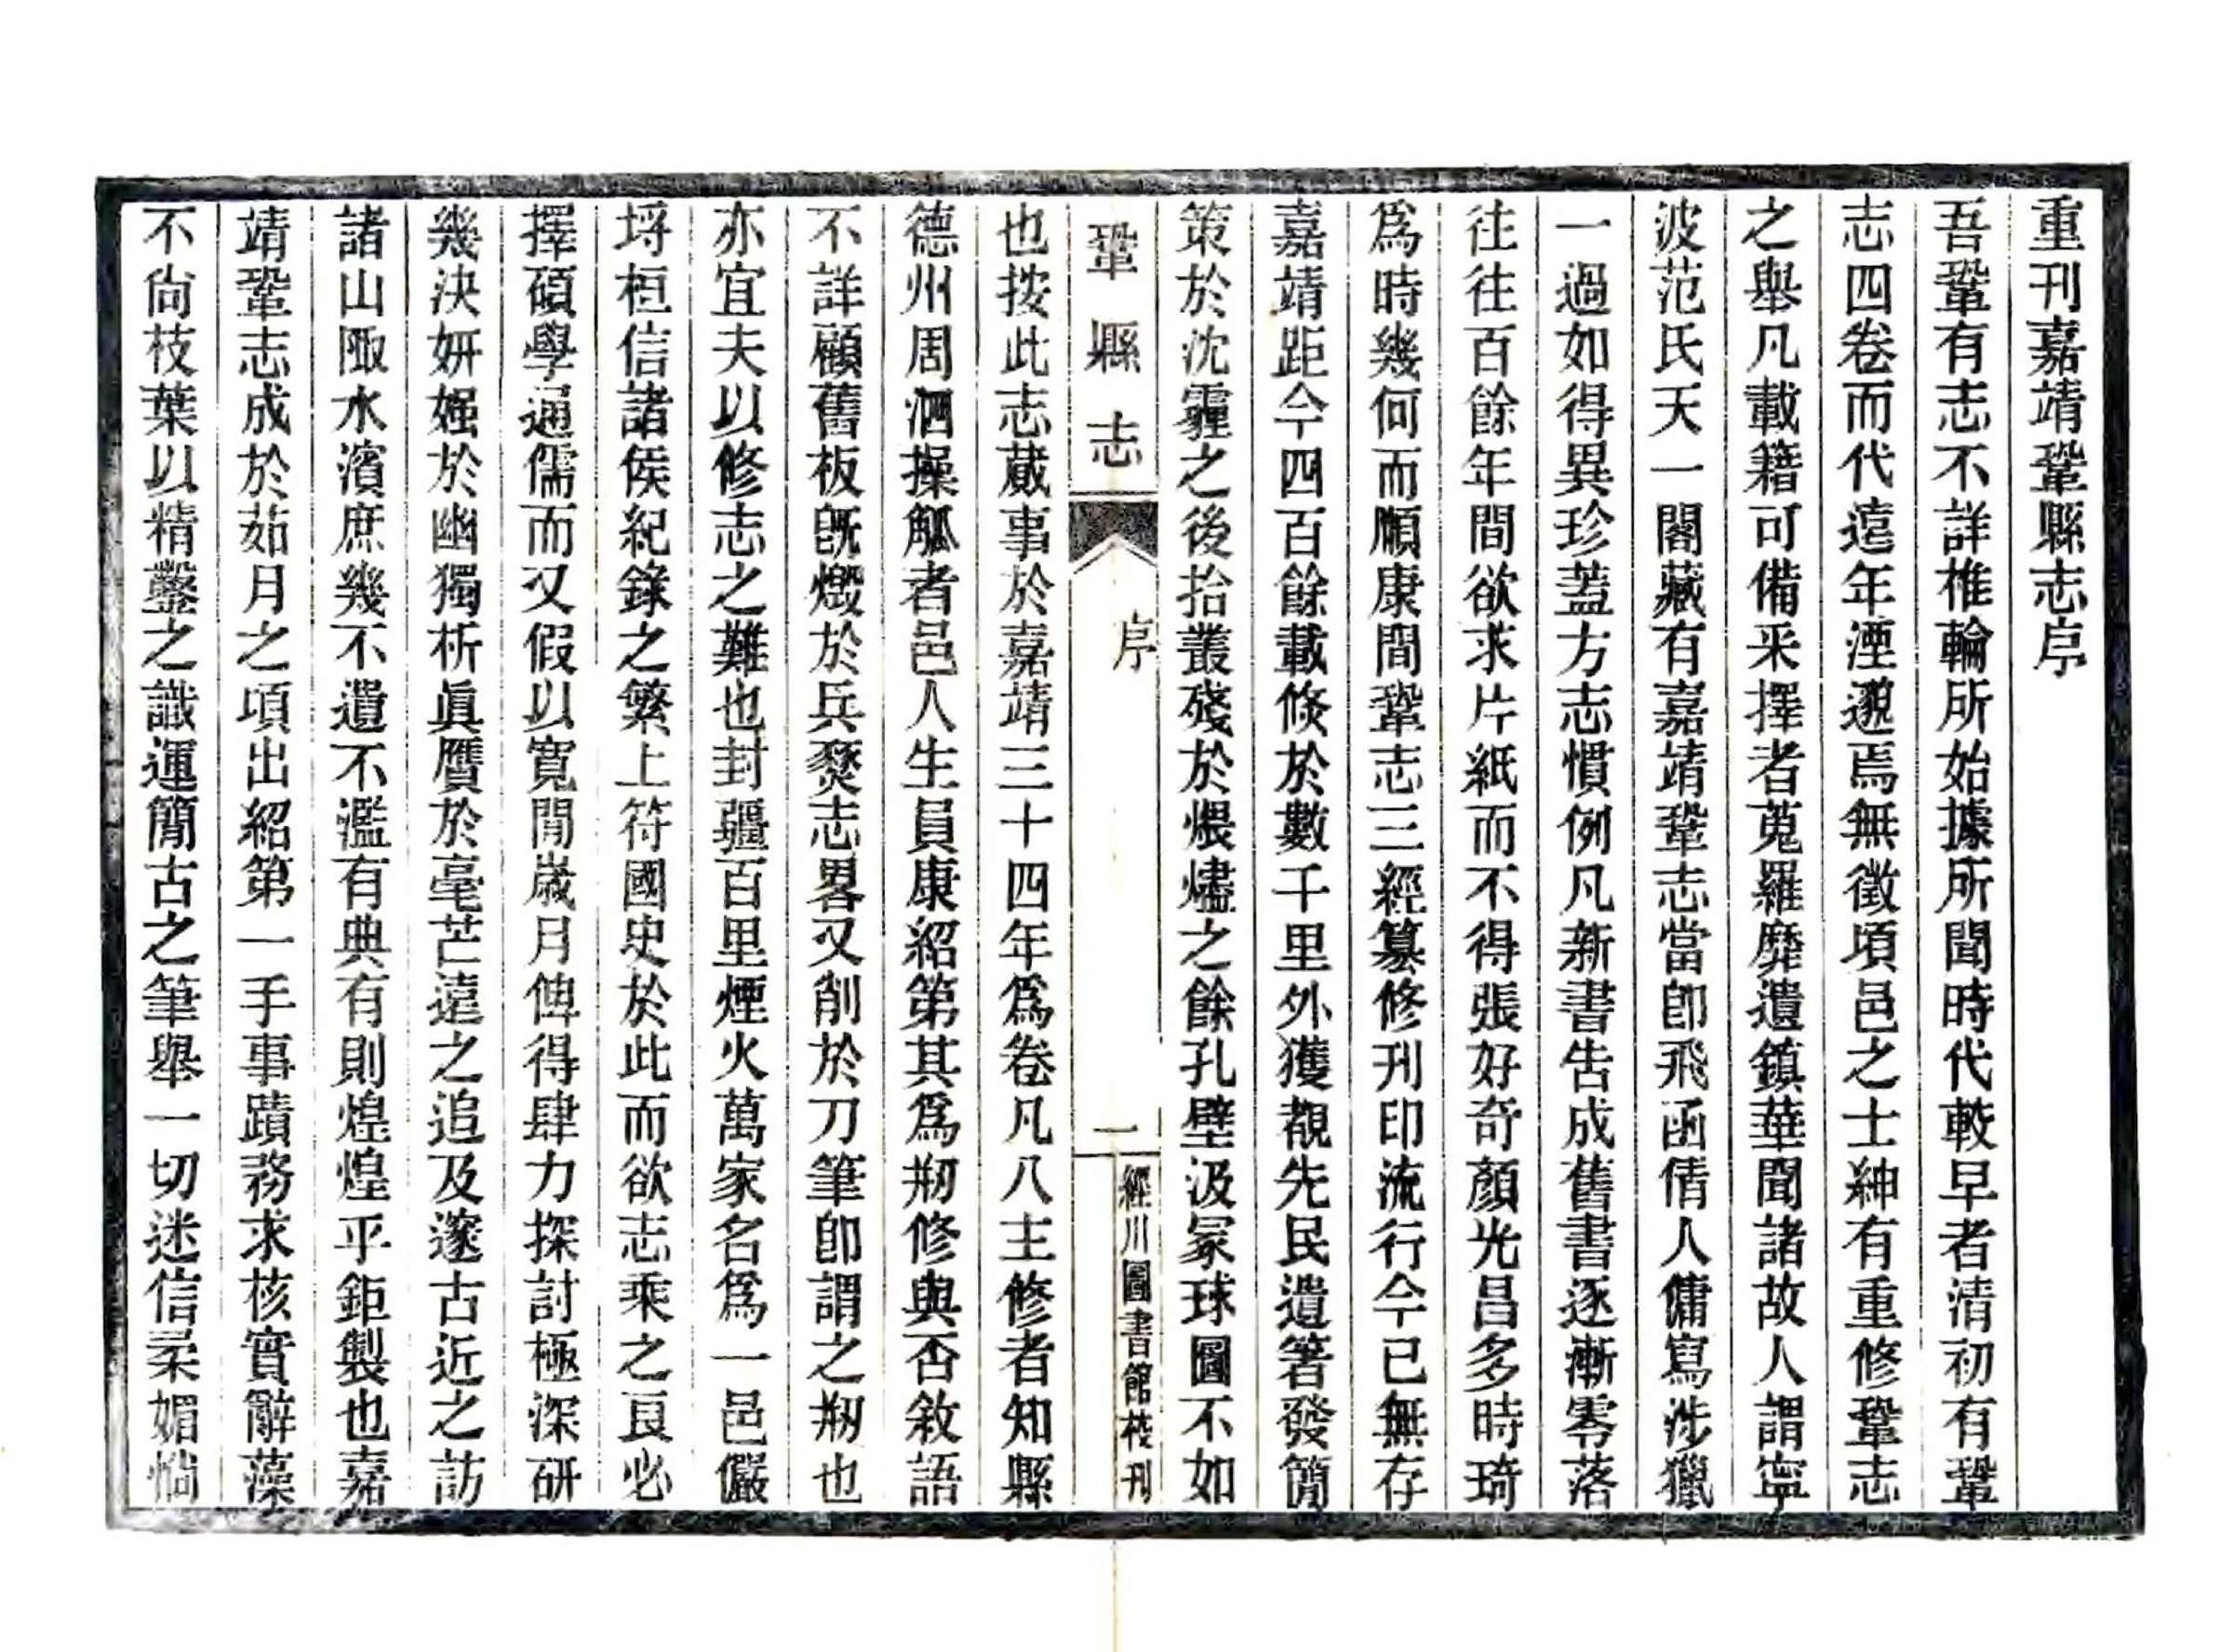 重刊嘉靖鞏縣志序
吾鞏有志不詳椎輪所始據所聞時代較早者清初有鞏
志四卷而代遠年湮邈焉無徵頃邑之士紳有重修鞏志
之舉凡載籍可備采擇者蒐羅靡遺鎮華聞諸故人謂寧
波范氏天一閣藏有嘉靖鞏志當卽飛函倩人傭寫涉獵
一過如得異珍蓋方志慣例凡新書告成舊書逐漸零落
往往百餘年間欲求片紙而不得張好奇顏光昌多時琦
爲時幾何而順康間鞏志三經纂修刊印流行今已無存
嘉靖距今四百餘載倐於數千里外獲覩先民遺箸發簡
策於沈霾之後拾叢殘於煨燼之餘孔壁汲冢球圖不如
鞏縣志
序
一
經川圖書館校刊
也按此志蕆事於嘉靖三十四年爲卷凡八主修者知縣
德州周泗操觚者邑人生員康紹第其爲剏修與否敘語
不詳顧舊板旣燬於兵燹志畧又削於刀筆卽謂之剏也
亦宜夫以修志之難也封疆百里煙火萬家名爲一邑儼
埒桓信諸侯紀錄之繁上符國史於此而欲志乘之良必
擇碩學通儒而又假以寬閒歲月俾得肆力探討極深研
幾決妍媸於幽獨析眞贋於毫芒遠之追及邃古近之訪
諸山陬水濱庶幾不遺不濫有典有則煌煌乎鉅製也嘉
靖鞏志成於茹月之頃出紹第一手事蹟務求核實辭藻
不尙枝葉以精鑿之識運簡古之筆舉一切迷信柔媚惝